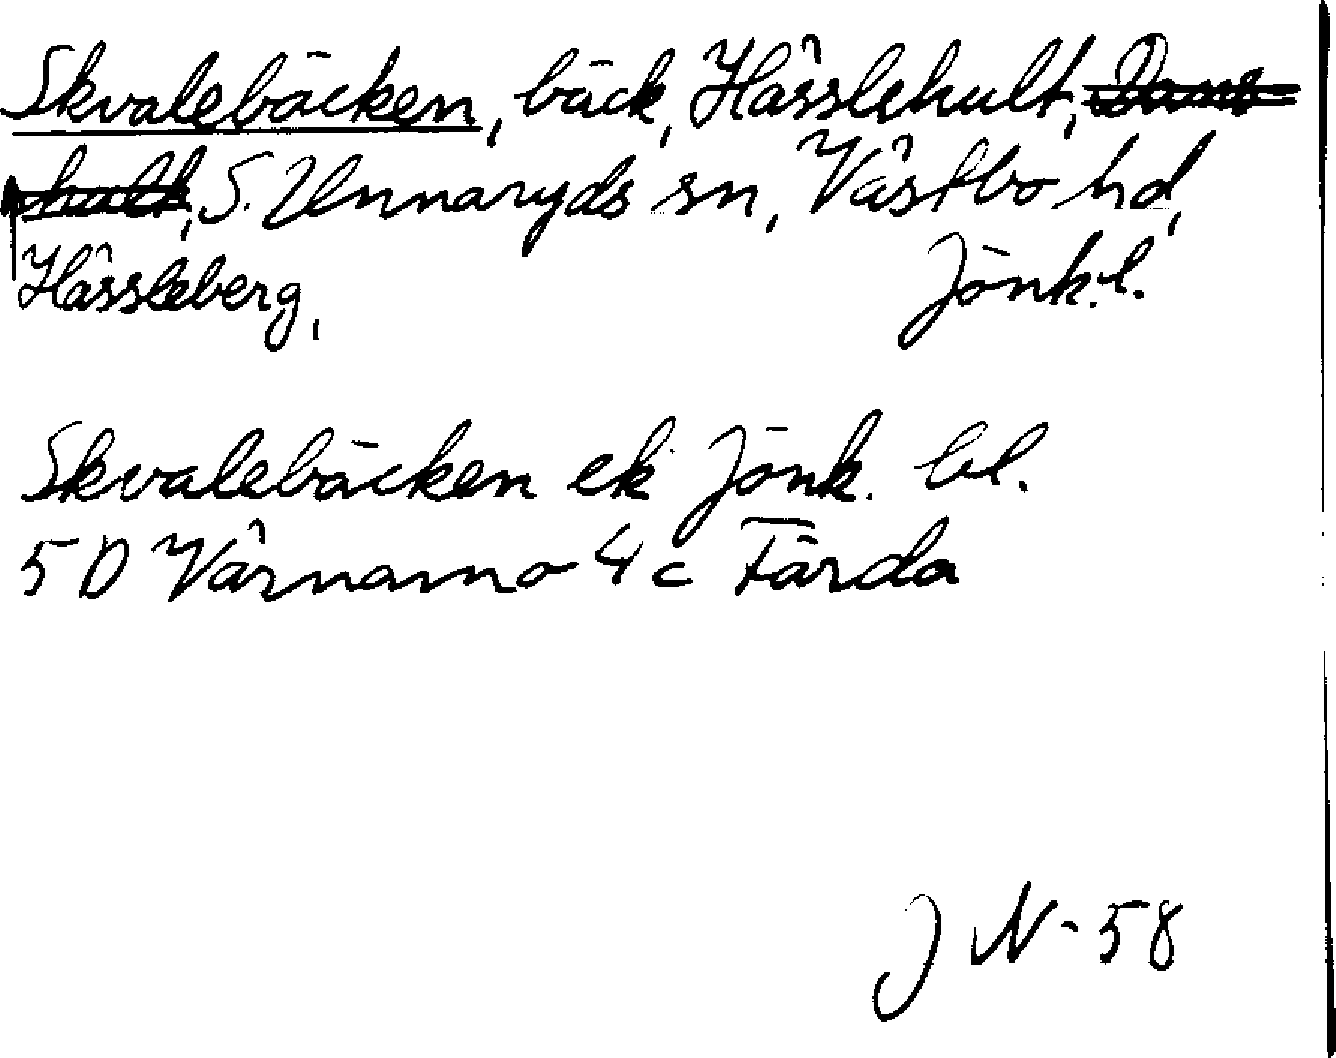 Skvalebäcken, bäck, Hässlehult, Dams-
hult, S. Unnaryds sn, Västbo hd,
Hässleberg, Jönk. l.
Skvalebäcken ek Jönk. bl.
5 D Värnamo 4 c Färda
J N-58